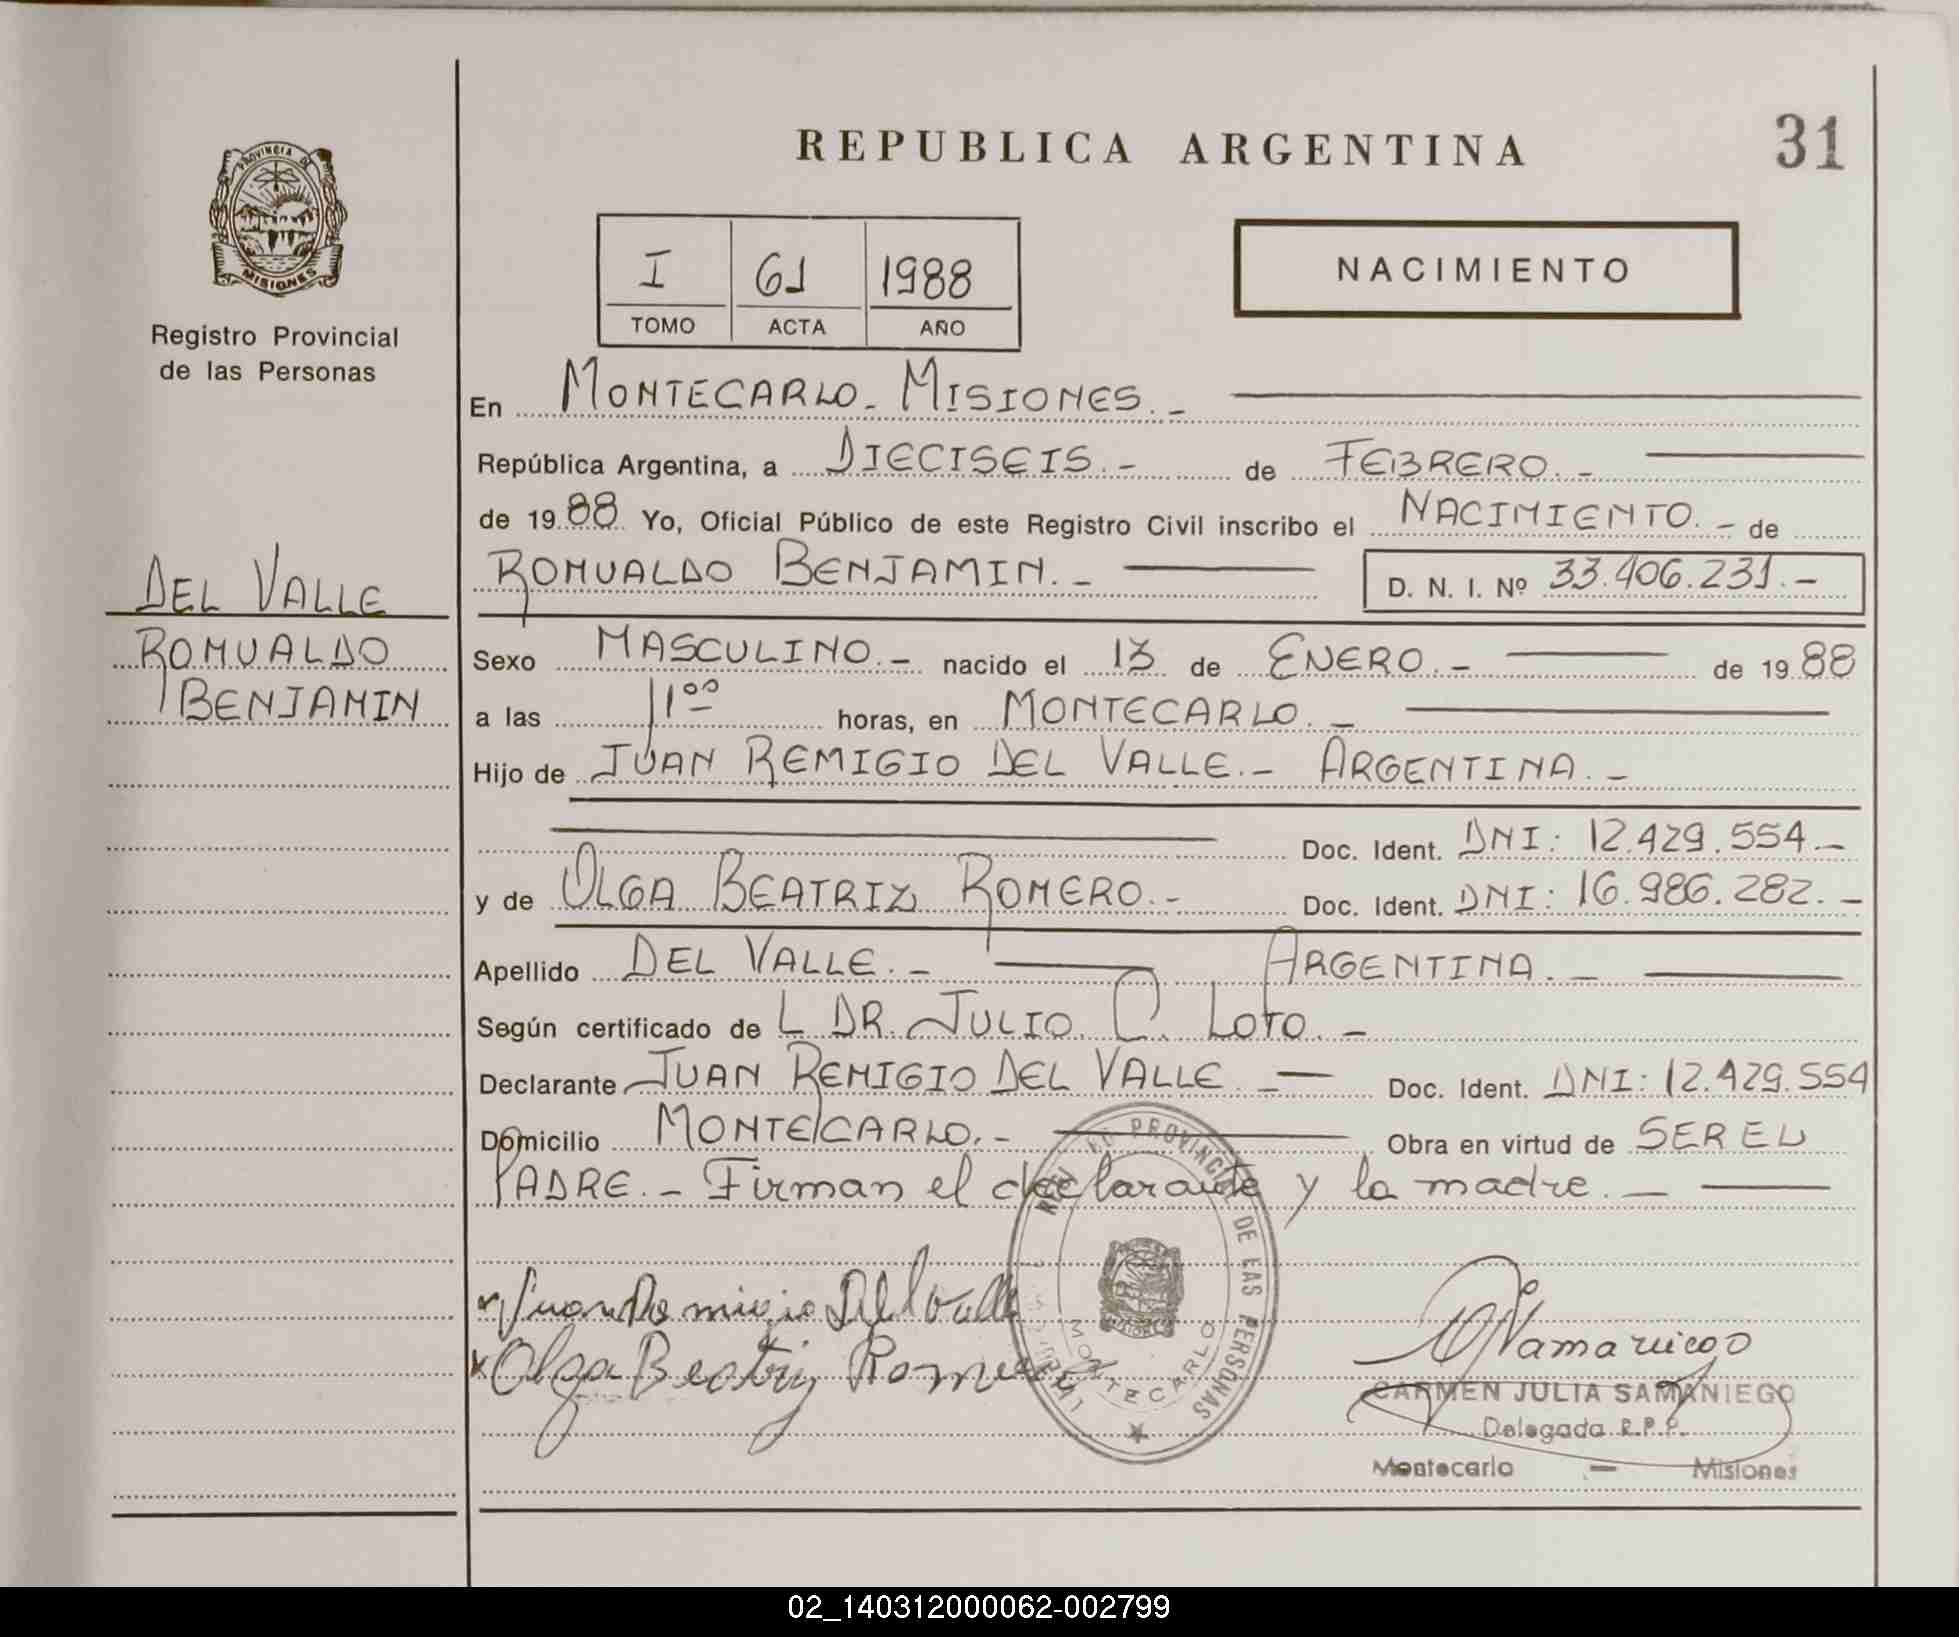 REPUBLICA ARGENTINA
31
PROVINCIA DE
MISIONES
Registro Provincial
de las Personas
I 61 1988
TOMO ACTA AÑO
NACIMIENTO
En MONTECARLO - MISIONES. -
República Argentina, a DIECISEIS. - de FEBRERO. -
de 19 88 Yo, Oficial Público de este Registro Civil inscribo el NACIMIENTO. - de
ROMUALDO BENJAMIN. - D. N. I. Nº 33.406.231. -
DEL VALLE
ROMUALDO
BENJAMIN
Sexo MASCULINO. - nacido el 13 de ENERO. - de 19 88
a las 11 00 horas, en MONTECARLO. -
Hijo de JUAN REMIGIO DEL VALLE. - ARGENTINA. -
Doc. Ident. DNI: 12.429.554 -
y de OLGA BEATRIZ ROMERO. - Doc. Ident. DNI: 16.986.282. -
Apellido DEL VALLE. - ARGENTINA. -
Según certificado de L DR. JULIO C. LOTO. -
Declarante JUAN REMIGIO DEL VALLE. - Doc. Ident. DNI: 12.429.554
Domicilio MONTECARLO. - Obra en virtud de SER EL
PADRE. - Firman el declarante y la madre. -
Juan Remigio Del Valle
Olga Beatriz Romero
PROVINCIAL DE LAS PERSONAS
MONTECARLO
CARMEN JULIA SAMANIEGO
Delegada R.P.P.
Montecarlo - Misiones
02_140312000062-002799